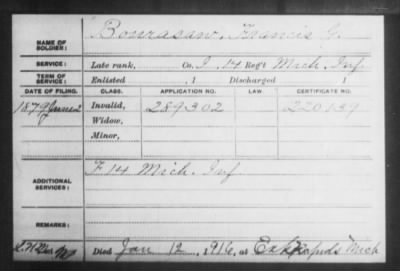 NAME OF SOLDIER: Bourasaw, Francis G.
SERVICE: Late rank, Co. I, 14 Reg't Mich. Inf.
TERM OF SERVICE: Enlisted , 1 Discharged , 1
DATE OF FILING. CLASS. APPLICATION NO. LAW. CERTIFICATE NO.
1879 June 2 Invalid, 289302 220139
Widow,
Minor,
ADDITIONAL SERVICES: F 14 Mich. Inf.
REMARKS:
Died Jan 12, 1916, at Rapids Mich